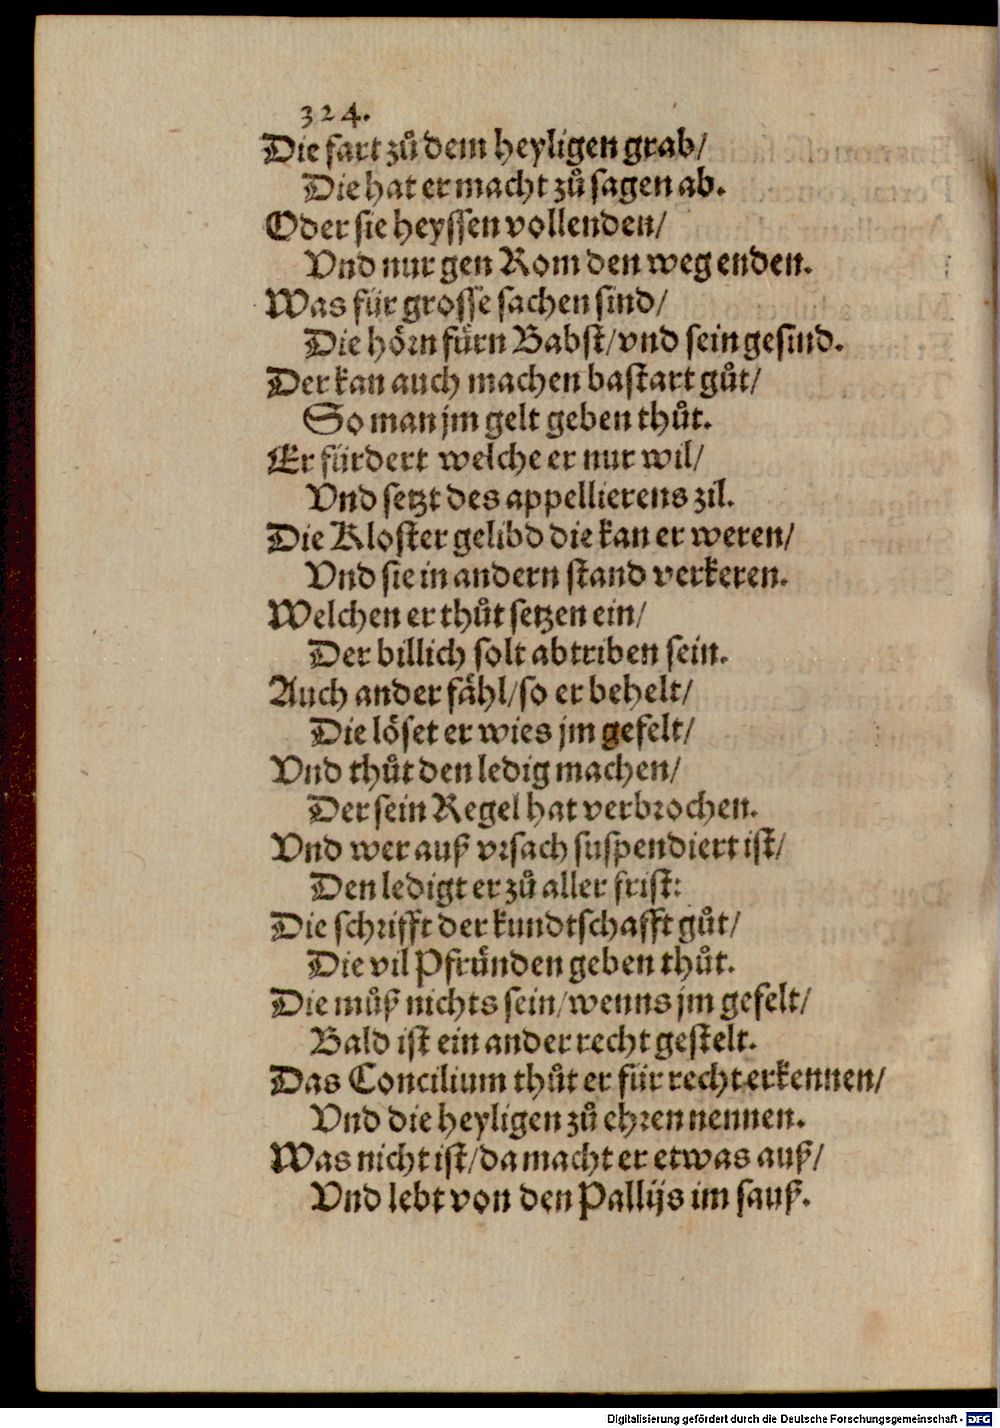 324.
Die fart zů dem heyligen grab/
Die hat er macht zů sagen ab.
Oder sie heyssen vollenden/
Vnd nur gen Rom den weg enden.
Was für grosse sachen sind/
Die hörn fürn Babst/vnd sein gesind.
Der kan auch machen bastart gůt/
So man jm gelt geben thůt.
Er fürdert welche er nur wil/
Vnd setzt des appellierens zil.
Die Kloster gelibd die kan er weren/
Vnd sie in andern stand verkeren.
Welchen er thůt setzen ein/
Der billich solt abtriben sein.
Auch ander fähl/so er behelt/
Die löset er wies jm gefelt/
Vnd thůt den ledig machen/
Der sein Regel hat verbrochen.
Vnd wer auß vrsach suspendiert ist/
Den ledigt er zů aller frist:
Die schrifft der kundtschafft gůt/
Die vil Pfründen geben thůt.
Die můß nichts sein/wenns jm gefelt/
Bald ist ein ander recht gestelt.
Das Concilium thůt er für recht erkennen/
Vnd die heyligen zů ehren nennen.
Was nicht ist/da macht er etwas auß/
Vnd lebt von den Pallijs im sauß.
Digitalisierung gefördert durch die Deutsche Forschungsgemeinschaft - DFG